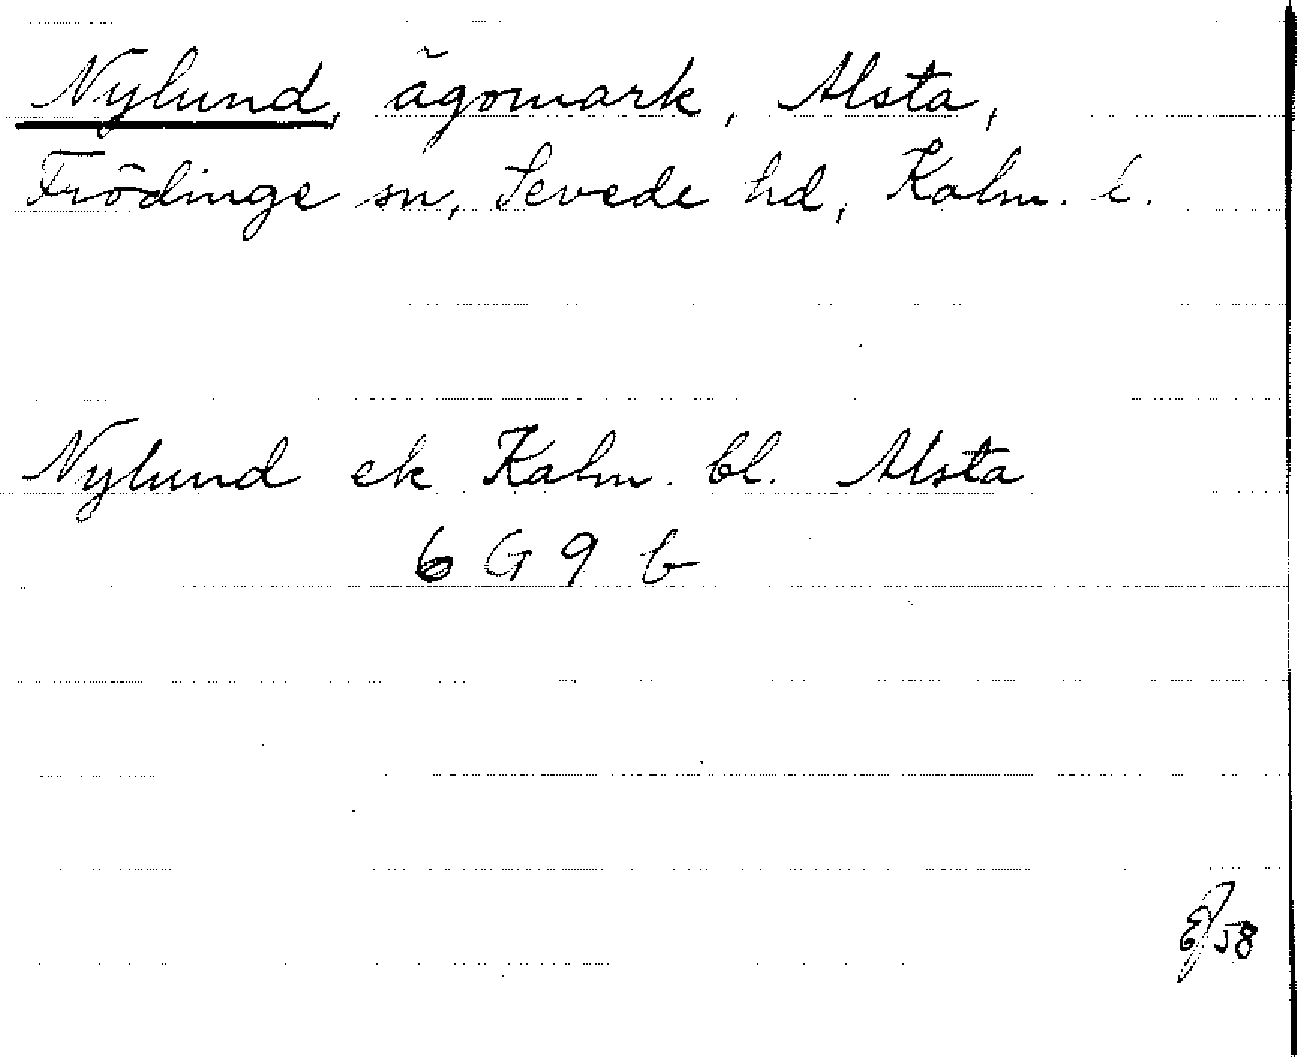 Nylund, ägomark, Alsta,
Frödinge sn, Sevede hd, Kalm. l.
Nylund ek Kalm. bl. Alsta
6 G 9 b
58